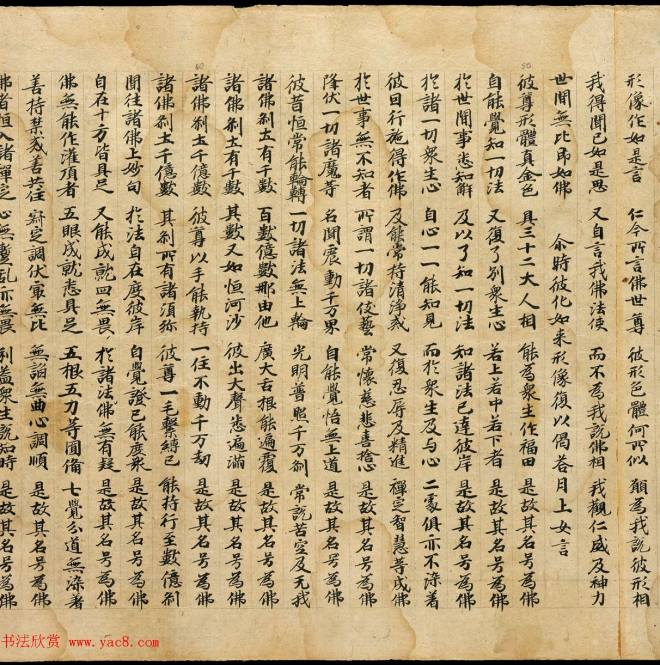 形像作如是言　仁今所言佛世尊　彼形色體何所似　願為我說彼形相
我得聞已如是思　又自言我佛法使　而不為我說佛相　我觀仁威及神力
世間無比即如佛　尒時彼化如来形像復以偈荅月上女言
彼尊形體真金色　具三十二大人相　能為衆生作福田　是故其名号為佛
自能覺知一切法　又復了別衆生心　若上若中若下者　是故其名号為佛
於世間事悉知解　及以了知一切法　知諸法已達彼岸　是故其名号為佛
於諸一切衆生心　自心一一能知見　而於衆生及与心　二家俱亦不染著
彼曰行施得作佛　及能常持清淨戒　又復忍辱及精進　禪定智慧等成佛
於世事無不知者　所謂一切諸伎藝　常懷慈悲喜捨心　是故其名号為佛
降伏一切諸魔等　名聞震動千万界　自能覺悟無上道　是故其名号為佛
彼昔恒常能輪轉　一切諸法無上輪　光明普照千万剎　常說苦空及无我
諸佛剎土有千數　百數億數那由他　廣大舌根能遍覆　是故其名号為佛
諸佛剎土有千數　其數又如恒河沙　彼出大聲悉遍滿　是故其名号為佛
諸佛剎土千億數　彼尊以手能執持　一住不動千万劫　是故其名号為佛
諸佛剎土千億數　其剎所有諸湏弥　彼尊一毛繫縛已　能持行至數億剎
聞往諸佛上妙句　於法自在度彼岸　自覺證已能度衆　是故其名号為佛
自在十方皆具足　又能成就四無畏　於諸法佛無有疑　是故其名号為佛
佛無能作灌頂者　五眼成就悉具足　五根五力等圓備　七覺分道無染著
善持禁戒善共住　寂定調伏寂無比　無諂無曲心調順　是故其名号為佛
佛者恒入諸禪定　心無亂亦無畏　利益衆生說知時　是故其名号為佛
50
60
书法欣赏 www.yac8.com